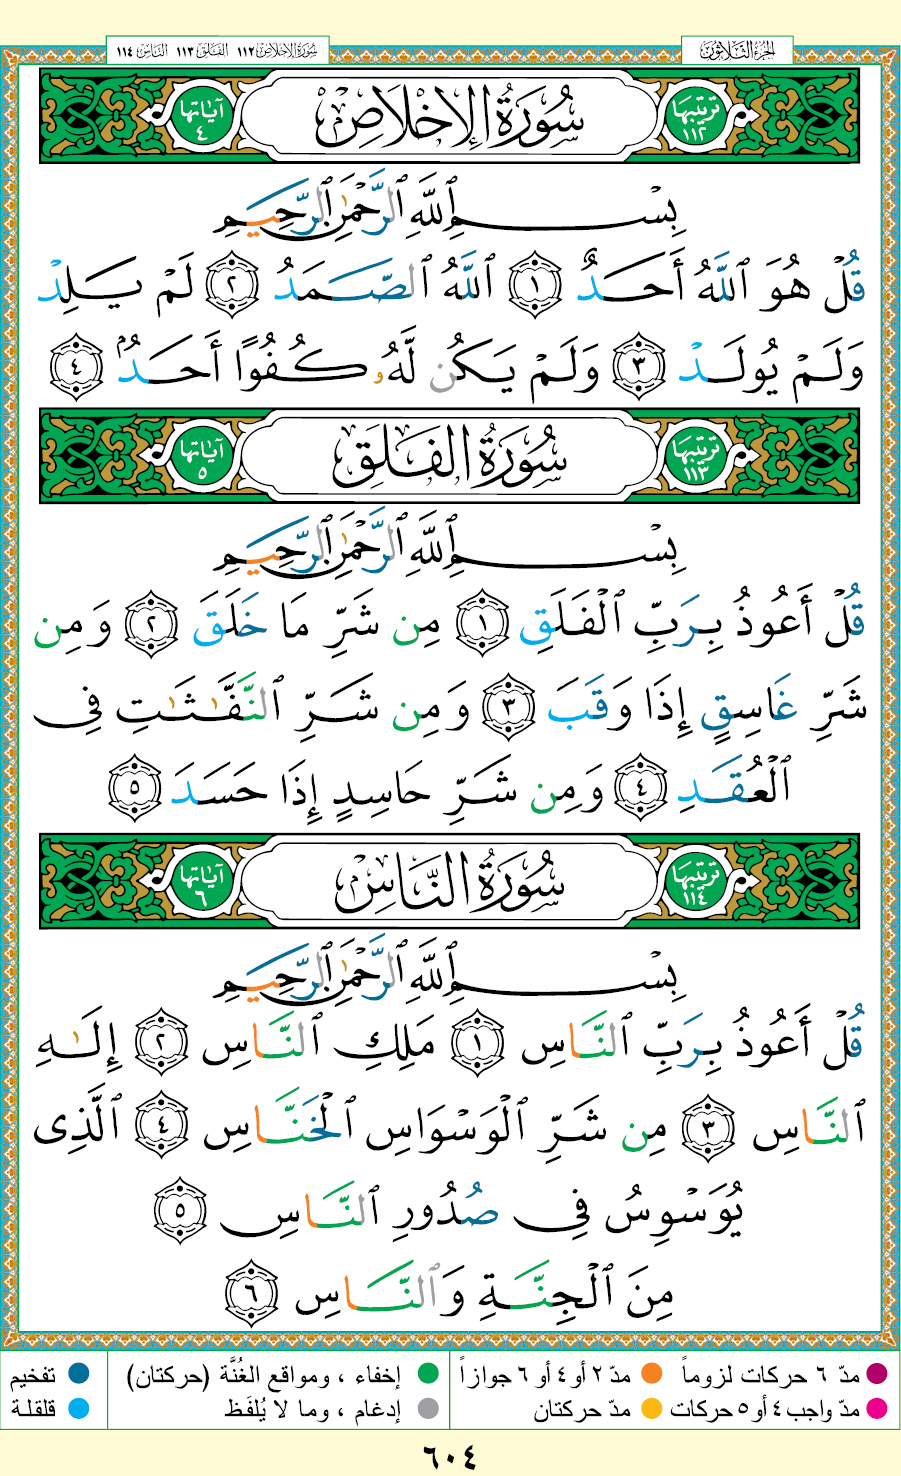 الجزء الثلاثون
سورة الإخلاص ١١٢ الفلق ١١٣ الناس ١١٤
ترتيبها ١١٢ سُورَةُ الإِخْلَاصِ آياتها ٤
بِسْمِ ٱللَّهِ ٱلرَّحْمَٰنِ ٱلرَّحِيمِ
قُلْ هُوَ ٱللَّهُ أَحَدٌ ١ ٱللَّهُ ٱلصَّمَدُ ٢ لَمْ يَلِدْ
وَلَمْ يُولَدْ ٣ وَلَمْ يَكُن لَّهُۥ كُفُوًا أَحَدٌۢ ٤
ترتيبها ١١٣ سُورَةُ الفَلَقِ آياتها ٥
بِسْمِ ٱللَّهِ ٱلرَّحْمَٰنِ ٱلرَّحِيمِ
قُلْ أَعُوذُ بِرَبِّ ٱلْفَلَقِ ١ مِن شَرِّ مَا خَلَقَ ٢ وَمِن
شَرِّ غَاسِقٍ إِذَا وَقَبَ ٣ وَمِن شَرِّ ٱلنَّفَّٰثَٰتِ فِى
ٱلْعُقَدِ ٤ وَمِن شَرِّ حَاسِدٍ إِذَا حَسَدَ ٥
ترتيبها ١١٤ سُورَةُ النَّاسِ آياتها ٦
بِسْمِ ٱللَّهِ ٱلرَّحْمَٰنِ ٱلرَّحِيمِ
قُلْ أَعُوذُ بِرَبِّ ٱلنَّاسِ ١ مَلِكِ ٱلنَّاسِ ٢ إِلَٰهِ
ٱلنَّاسِ ٣ مِن شَرِّ ٱلْوَسْوَاسِ ٱلْخَنَّاسِ ٤ ٱلَّذِى
يُوَسْوِسُ فِى صُدُورِ ٱلنَّاسِ ٥
مِنَ ٱلْجِنَّةِ وَٱلنَّاسِ ٦
مدّ ٦ حركات لزوماً مدّ ٢ أو ٤ أو ٦ جوازاً إخفاء ، ومواقع الغُنَّة (حركتان) تفخيم
مدّ واجب ٤ أو ٥ حركات مدّ حركتان إدغام ، وما لا يُلفَظ قلقلة
٦٠٤